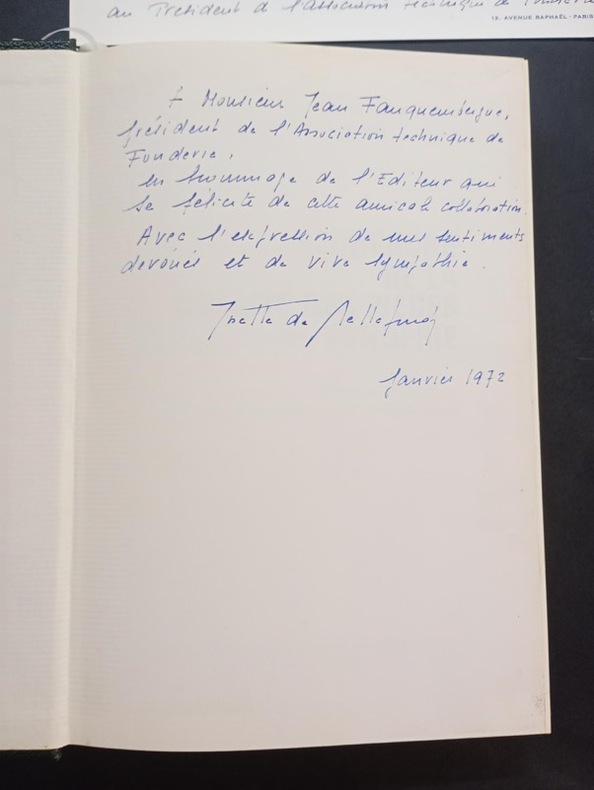 au Président de l'association technique de
13, AVENUE RAPHAËL · PARIS
A Monsieur Jean Fauquembergue,
président de l'Association technique de
Fonderie,
en hommage de l'Editeur qui
se félicite de cette amicale collaboration.
Avec l'expression de mes sentiments
dévoués et de vive sympathie.
de
Janvier 1972